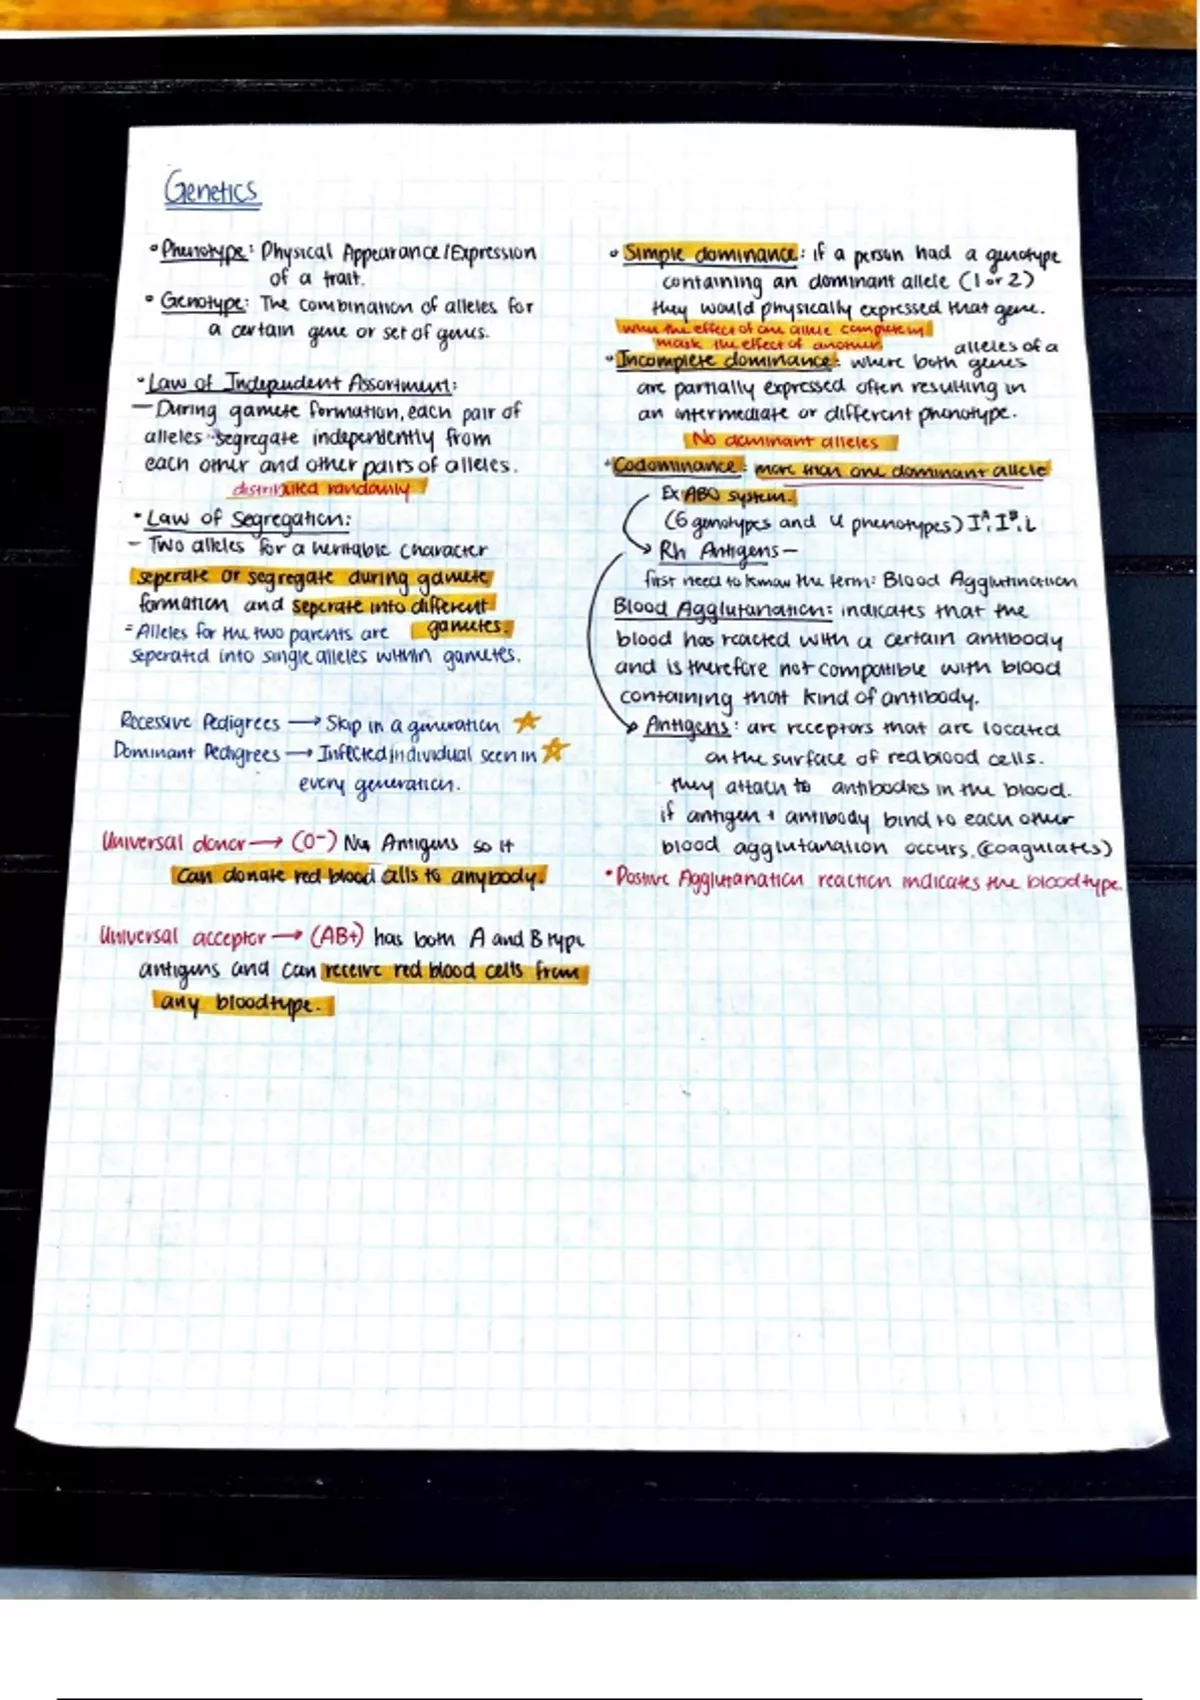 Genetics
• Phenotype: Physical Appearance/Expression
of a trait.
• Genotype: The combination of alleles for
a certain gene or set of genes.
• Law of Independent Assortment:
— During gamete formation, each pair of
alleles segregate independently from
each other and other pairs of alleles.
distributed randomly
• Law of Segregation:
- Two alleles for a heritable character
seperate or segregate during gamete
formation and seperate into different
gametes.
= Alleles for the two parents are
seperated into single alleles within gametes.
Recessive Pedigrees → Skip in a generation ☆
Dominant Pedigrees → Infected individual seen in ☆
every generation.
Universal donor → (O-) No Antigens so it
can donate red blood cells to anybody.
Universal acceptor → (AB+) has both A and B type
antigens and can receive red blood cells from
any bloodtype.
• Simple dominance: if a person had a genotype
containing an dominant allele (1 or 2)
they would physically expressed that gene.
when the effect of one allele completely
mask the effect of another
alleles of a
• Incomplete dominance: where both genes
are partially expressed often resulting in
an intermediate or different phenotype.
No dominant alleles
• Codominance: more than one dominant allele
Ex: ABO system.
(6 genotypes and 4 phenotypes) Iᴬ, Iᴮ, i
→ Rh Antigens —
first need to know the term: Blood Agglutination
Blood Agglutanation: indicates that the
blood has reacted with a certain antibody
and is therefore not compatible with blood
containing that kind of antibody.
→ Antigens: are receptors that are located
on the surface of red blood cells.
they attach to antibodies in the blood.
if antigen + antibody bind to each other
blood agglutanation occurs. (coagulates)
• Positive Agglutanation reaction indicates the bloodtype.